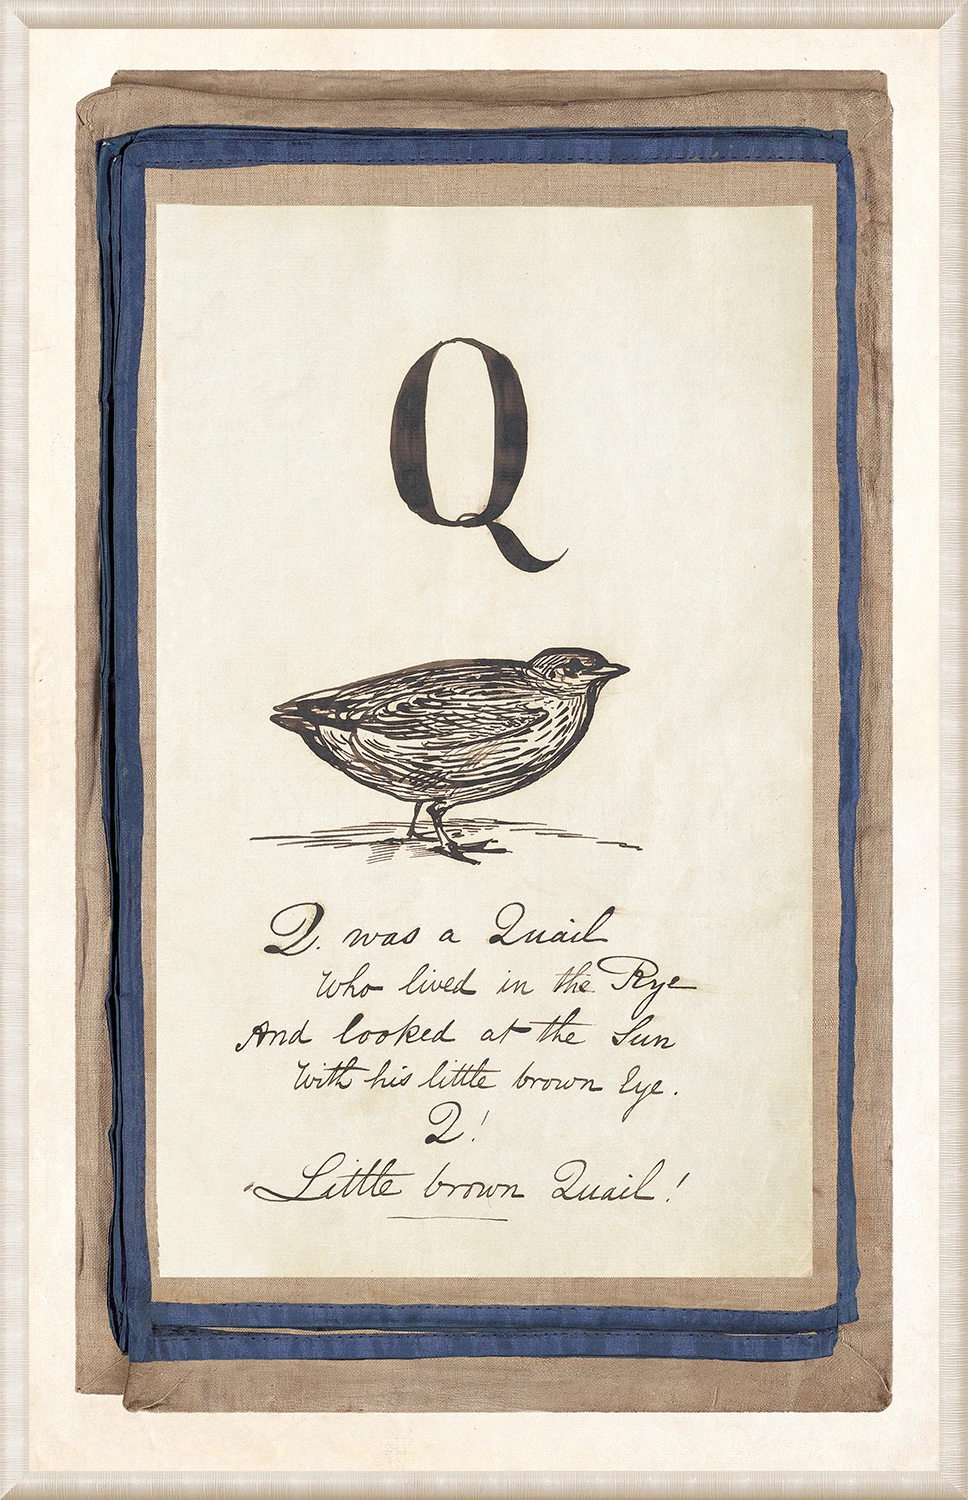 Q
Q. was a Quail
Who lived in the Rye
And looked at the Sun
With his little brown Eye.
Q!
Little brown Quail!